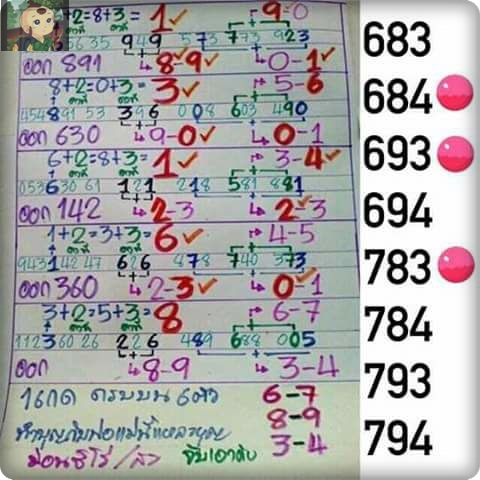 +2=8+3= 1 9=0
56 35 949 573 773 923
ออก 891 8-9 0-1
8+2=0+3= 3 5-6
454891 53 396 008 603 490
ออก 630 9-0 0-1
6+2=8+3= 1 3-4
053630 61 121 218 581 881
ออก 142 2-3 2-3
1+2=3+3= 6 4-5
943142 47 626 478 740 373
ออก 360 2-3 0-1
3+2=5+3= 8 6-7
112360 26 226 489 688 005
ออก 8-9 3-4
ครบบน 6-7
8-9
ทำบุญกับพ่อแม่ 3-4
683
684
693
694
783
784
793
794